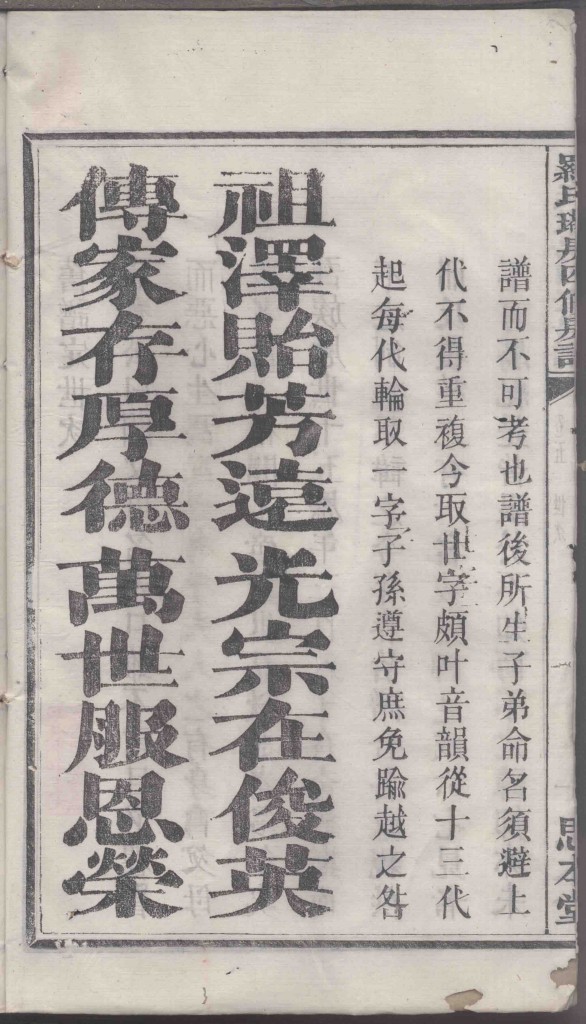 譜而不可考也譜後所生子弟命名須避上
代不得重複今取世字頗叶音韻從十三代
起每代輪取一字子孫遵守庶免踰越之咎
祖澤貽芳遠光宗在俊英
傳家存厚德萬世服恩榮
思本堂